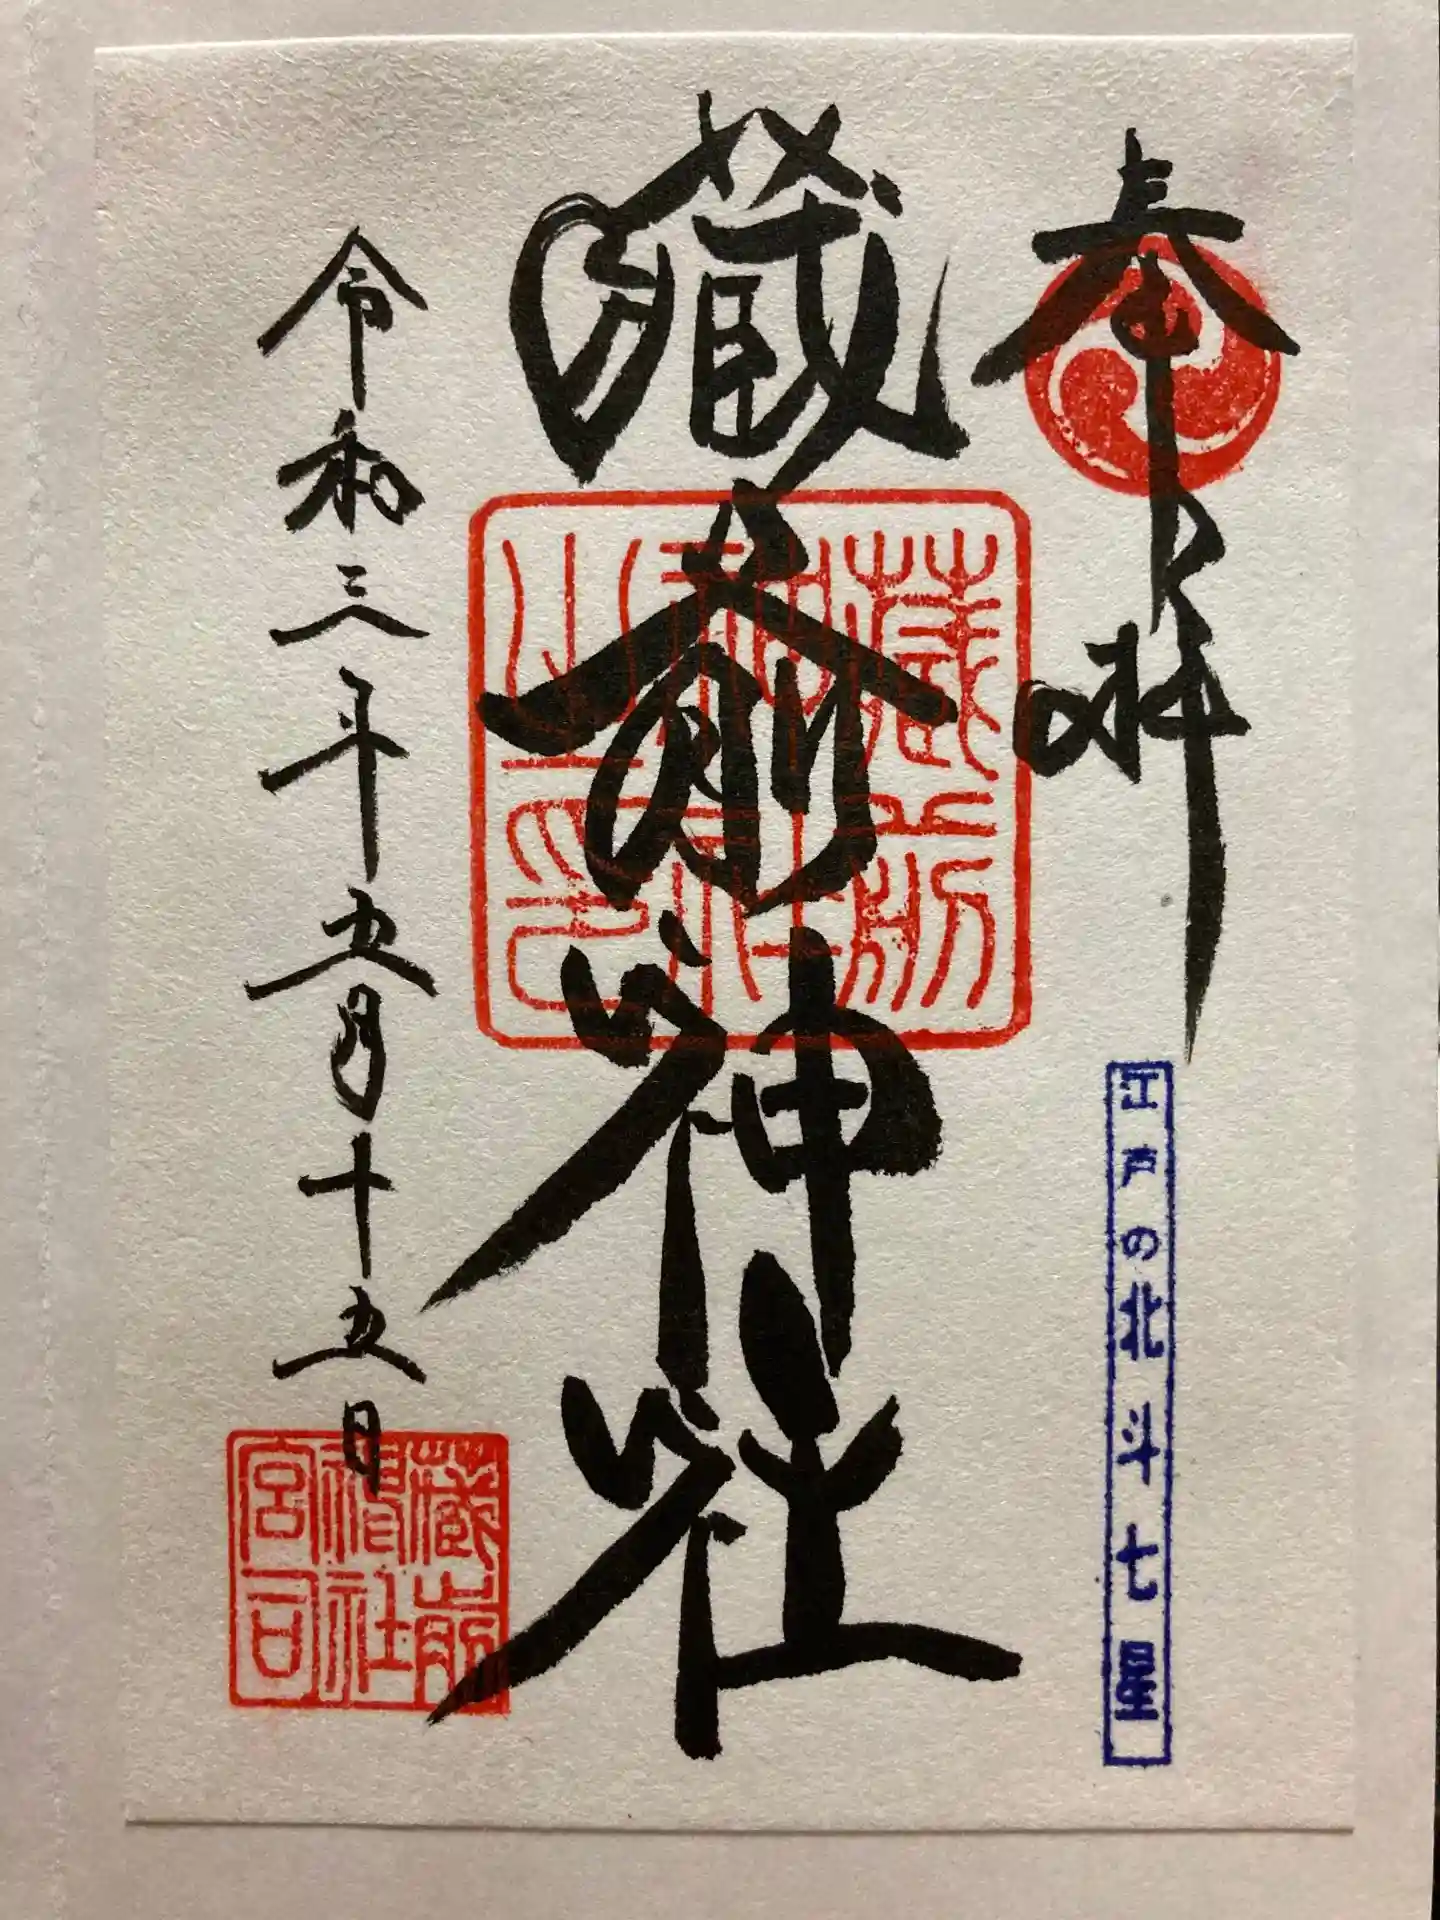 奉拝
江戸の北斗七星
藏前神社
藏前
神社
之印
令和三年五月十五日
藏前
神社
宮司